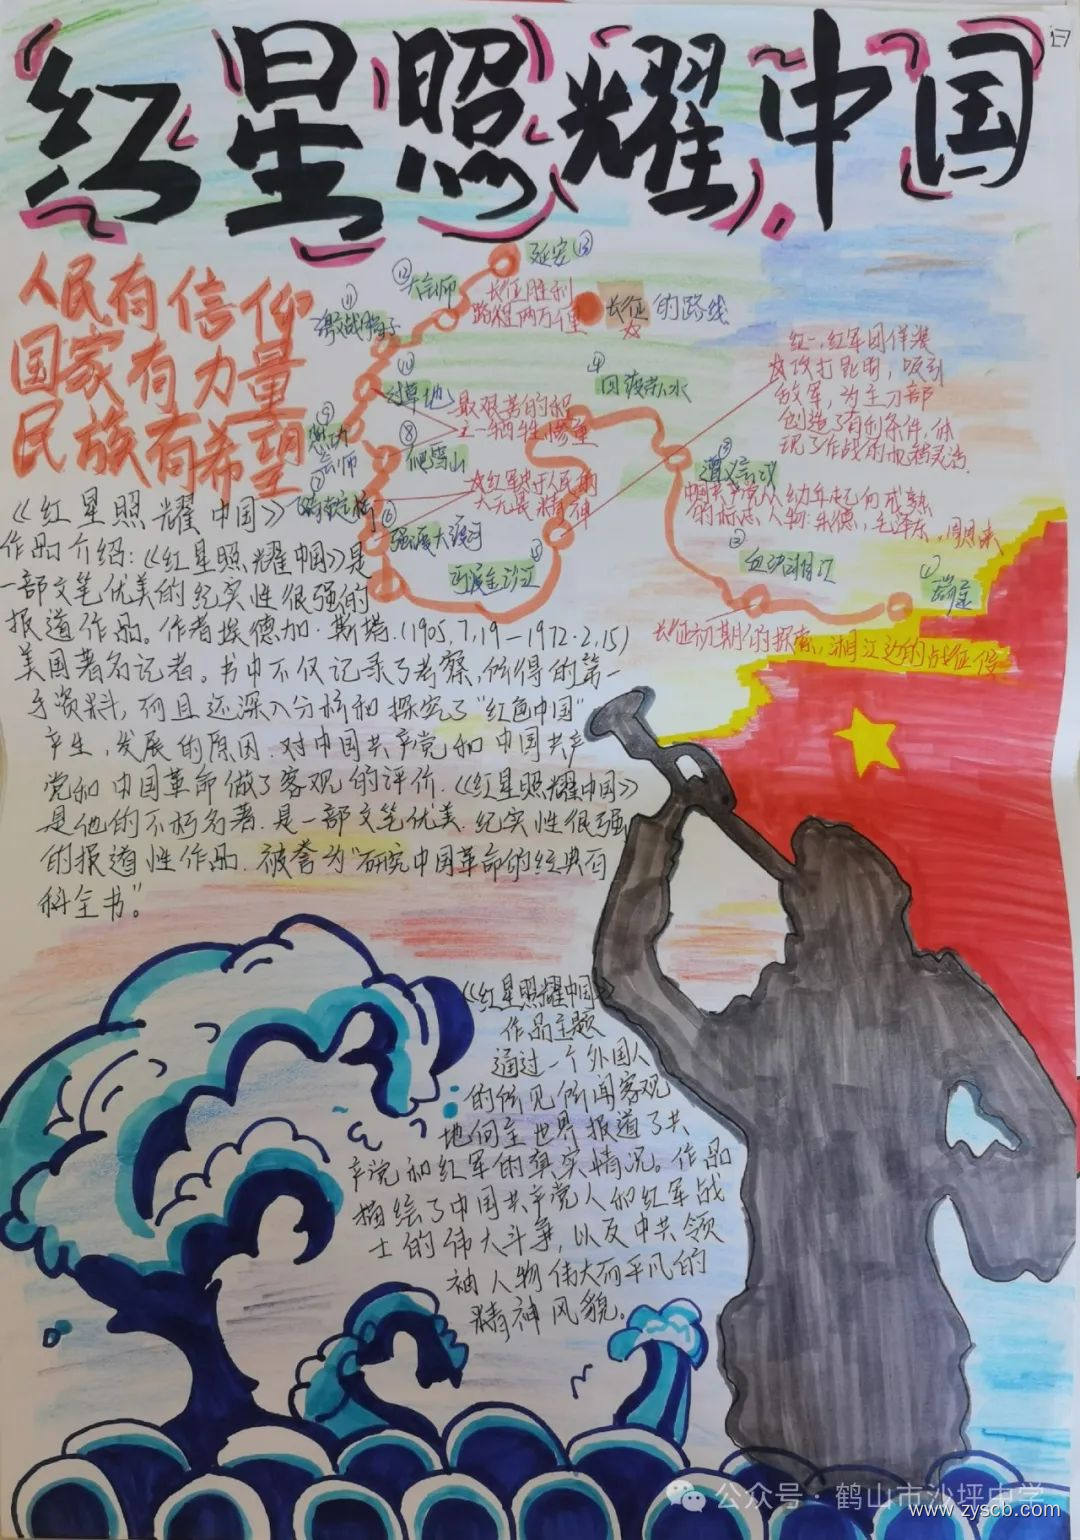 红星照耀中国
人民有信仰
国家有力量
民族有希望
延安⑬
⑫
大会师
长征胜利
路程两万里
长征的路线
⑪
⑩
过草地
⑨
⑧
爬雪山
⑦
最艰苦的积
⑥
强渡大渡河
红军对于人民的
大无畏精神
⑤
巧渡金沙江
④
四渡赤水
红一、红军团佯装
攻打昆明，吸引
敌军，为主力部
创造了有利条件，体
现了作战的机智灵活.
③
遵义会议
中国共产党从幼年走向成熟
的标志人物:朱德，毛泽东，周恩来
②
血决湘江
①
瑞金
长征初期的探索，湘江边的战征信
《红星照耀中国》
作品介绍:《红星照耀中国》是
一部文笔优美的纪实性很强的
报道作品。作者埃德加·斯塔.(1905,7,19—1972·2,15)
美国著名记者。书中不仅记录了考察,所得的第一
手资料,而且还深入分析和探究了“红色中国”
产生,发展的原因.对中国共产党和中国共产
党和中国革命做了客观的评价.《红星照耀中国》
是他的不朽名著.是一部文笔优美.纪实性很强
的报道性作品.被誉为“研究中国革命的经典百
科全书”。
《红星照耀中国》
作品主题
通过一个外国人
的所见所闻客观
地向全世界报道了共
产党和红军的真实情况。作品
描绘了中国共产党人和红军战
士的伟大斗争,以及中共领
袖人物伟大而平凡的
精神风貌。
公众号·鹤山市沙坪中学
www.zyscb.com